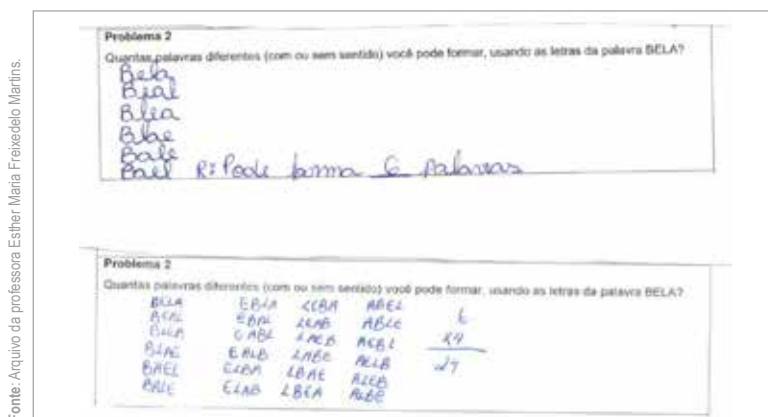 Fonte: Arquivo da professora Esther Maria Freixedelo Martins.
Problema 2
Quantas palavras diferentes (com ou sem sentido) você pode formar, usando as letras da palavra BELA?
Bela
Beal
Blea
Blae
Bale
Bael R: Pode forma 6 palavras
Problema 2
Quantas palavras diferentes (com ou sem sentido) você pode formar, usando as letras da palavra BELA?
BELA EBLA LEBA ABEL
BEAL EBAL LEAB ABLE
BLEA EABL LAEB AEBL
BLAE EALB LABE AELB
BAEL ELBA LBAE ALEB
BALE ELAB LBEA ALBE
6
x4